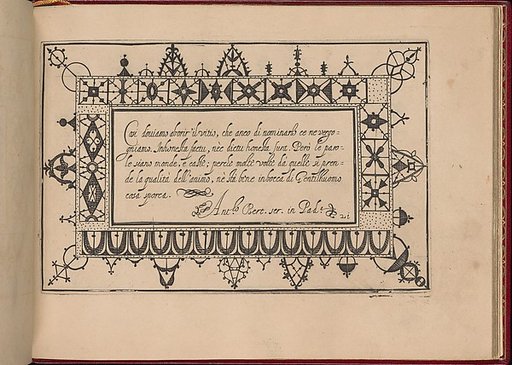 Cosi douiamo aborir il uitio, che anco di nominarlo ce ne uergo-
gniamo. Inhonesta factu, nec dictu honesta sunt. Però le paro-
le siano monde, e caste; perche molte volte da quelle si pren-
de la qualità dell'animo, nè sta bene in bocca di Gentilhuomo
cosa sporca.
Ant.º scr. in Pad.ª
21